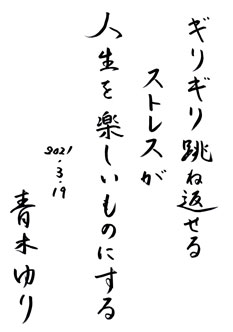 ギリギリ跳ね返せる
ストレスが
人生を楽しいものにする
2021.3.19
青木ゆり